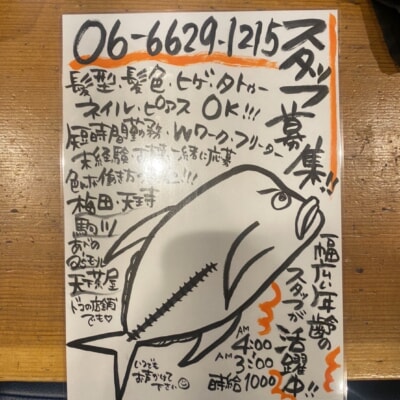 06-6629-1215
スタッフ募集!!
髪型・髪色・ヒゲ・タトゥー
ネイル・ピアス OK!!!
短時間勤務・Wワーク・フリーター
未経験
応募
色んな働き方
!!!
梅田・天王寺
駒川
あべの
天下茶屋
ドコの店舗
でも♡
幅広い年齢の
スタッフが
活躍中!!
AM 4:00
AM 3:00
時給1000
いつでも
お声かけて
下さい☺